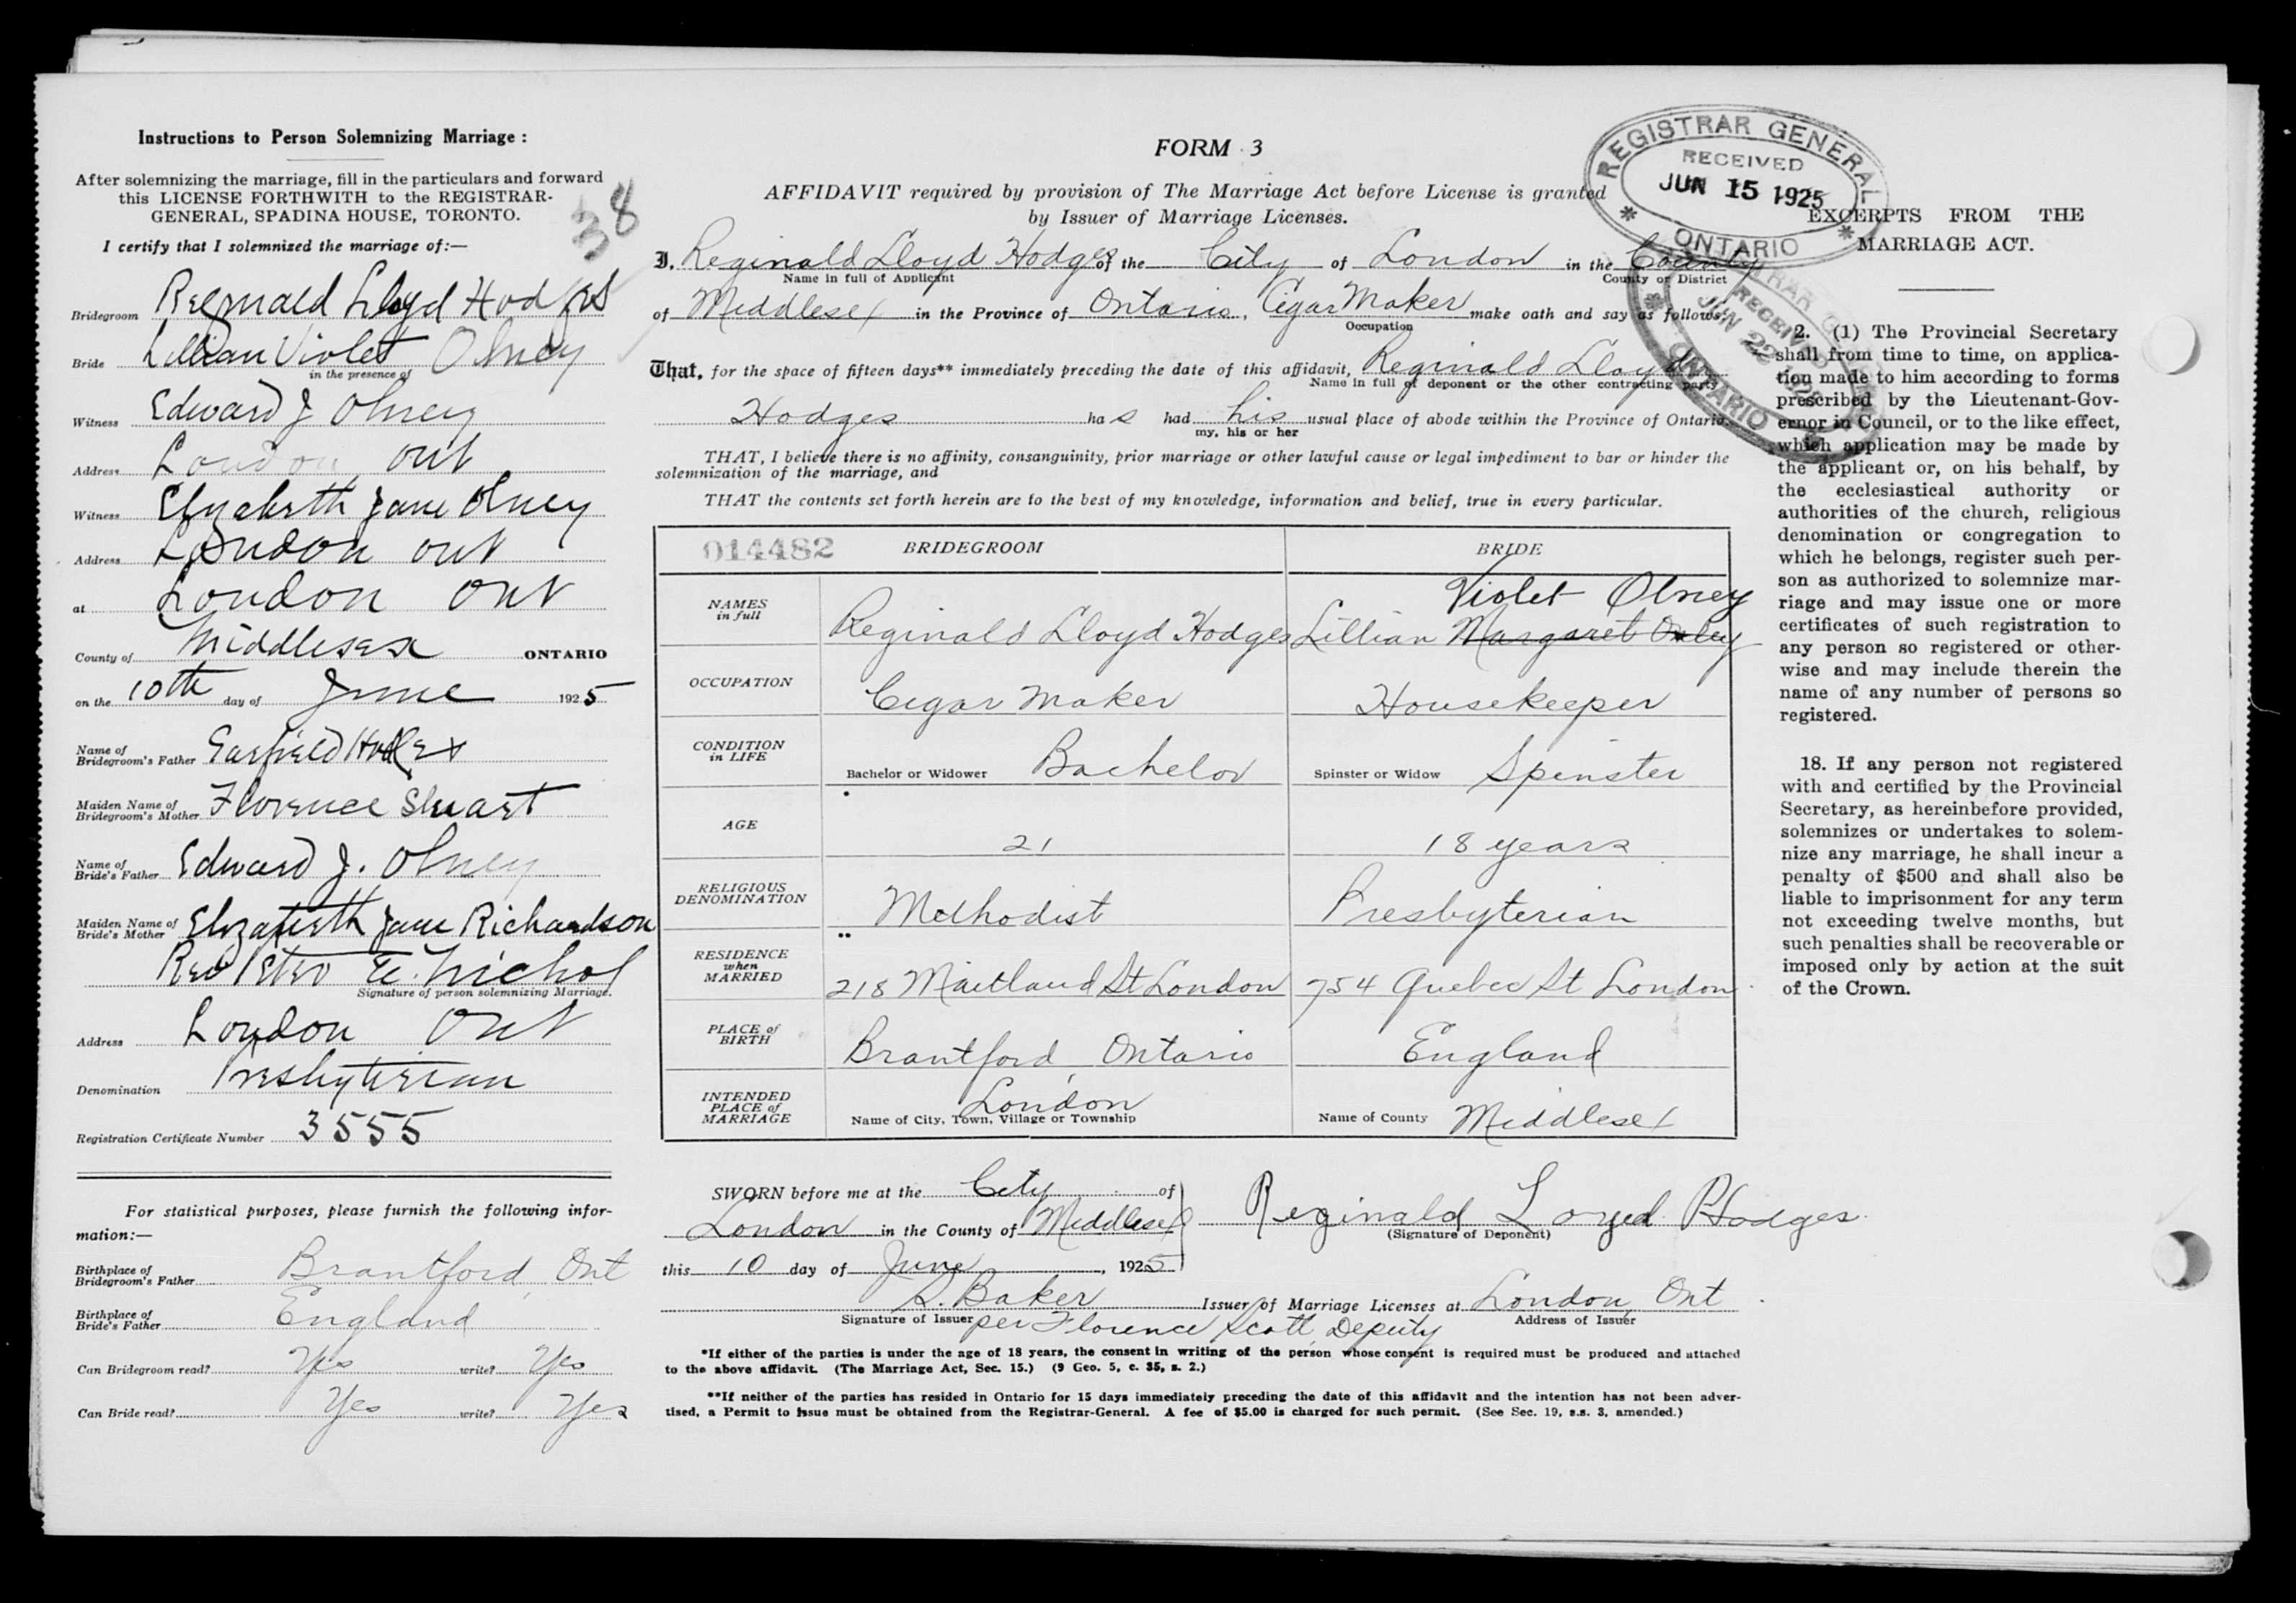 Instructions to Person Solemnizing Marriage :
After solemnizing the marriage, fill in the particulars and forward
this LICENSE FORTHWITH to the REGISTRAR-
GENERAL, SPADINA HOUSE, TORONTO.
38
I certify that I solemnized the marriage of:—
Bridegroom Reginald Lloyd Hodges
Bride Lillian Violet Olney
in the presence of
Witness Edward J Olney
Address London Ont
Witness Elizabeth Jane Olney
Address London Ont
at London Ont
County of Middlesex ONTARIO
on the 10th day of June 1925
Name of
Bridegroom's Father Garfield Hodges
Maiden Name of
Bridegroom's Mother Florence Stuart
Name of
Bride's Father Edward J. Olney
Maiden Name of
Bride's Mother Elizabeth Jane Richardson
Rev Peter E. Nichol
Signature of person solemnizing Marriage.
Address London Ont
Denomination Presbyterian
Registration Certificate Number 3555
For statistical purposes, please furnish the following infor-
mation:—
Birthplace of
Bridegroom's Father Brantford, Ont
Birthplace of
Bride's Father England
Can Bridegroom read? Yes write? Yes
Can Bride read? Yes write? Yes
FORM 3
AFFIDAVIT required by provision of The Marriage Act before License is granted
by Issuer of Marriage Licenses.
I, Reginald Lloyd Hodges of the City of London in the County
Name in full of Applicant County or District
of Middlesex in the Province of Ontario, Cigar Maker make oath and say as follows:
Occupation
That, for the space of fifteen days** immediately preceding the date of this affidavit, Reginald Lloyd
Name in full of deponent or the other contracting party
Hodges has had his usual place of abode within the Province of Ontario.
my, his or her
THAT, I believe there is no affinity, consanguinity, prior marriage or other lawful cause or legal impediment to bar or hinder the
solemnization of the marriage, and
THAT the contents set forth herein are to the best of my knowledge, information and belief, true in every particular.
014482 BRIDEGROOM BRIDE
Violet Olney
NAMES
in full Reginald Lloyd Hodges Lillian Margaret Oxley
OCCUPATION Cigar Maker Housekeeper
CONDITION
in LIFE Bachelor or Widower Bachelor Spinster or Widow Spinster
AGE 21 18 years
RELIGIOUS
DENOMINATION Methodist Presbyterian
RESIDENCE
when
MARRIED 218 Maitland St London 754 Quebec St London
PLACE of
BIRTH Brantford, Ontario England
INTENDED
PLACE of
MARRIAGE London Name of City, Town, Village or Township Name of County Middlesex
SWORN before me at the City of
London in the County of Middlesex Reginald Loyed Hodges
(Signature of Deponent)
this 10 day of June, 1925
Baker Issuer of Marriage Licenses at London, Ont
Signature of Issuer Address of Issuer
per Florence Scott, Deputy
*If either of the parties is under the age of 18 years, the consent in writing of the person whose consent is required must be produced and attached
to the above affidavit. (The Marriage Act, Sec. 15.) (9 Geo. 5, c. 35, s. 2.)
**If neither of the parties has resided in Ontario for 15 days immediately preceding the date of this affidavit and the intention has not been adver-
tised, a Permit to issue must be obtained from the Registrar-General. A fee of $5.00 is charged for such permit. (See Sec. 19, s.s. 3, amended.)
REGISTRAR GENERAL
RECEIVED
JUN 15 1925
ONTARIO
RECEIVED
JUN 22
ONTARIO
EXCERPTS FROM THE
MARRIAGE ACT.
2. (1) The Provincial Secretary
shall from time to time, on applica-
tion made to him according to forms
prescribed by the Lieutenant-Gov-
ernor in Council, or to the like effect,
which application may be made by
the applicant or, on his behalf, by
the ecclesiastical authority or
authorities of the church, religious
denomination or congregation to
which he belongs, register such per-
son as authorized to solemnize mar-
riage and may issue one or more
certificates of such registration to
any person so registered or other-
wise and may include therein the
name of any number of persons so
registered.
18. If any person not registered
with and certified by the Provincial
Secretary, as hereinbefore provided,
solemnizes or undertakes to solem-
nize any marriage, he shall incur a
penalty of $500 and shall also be
liable to imprisonment for any term
not exceeding twelve months, but
such penalties shall be recoverable or
imposed only by action at the suit
of the Crown.